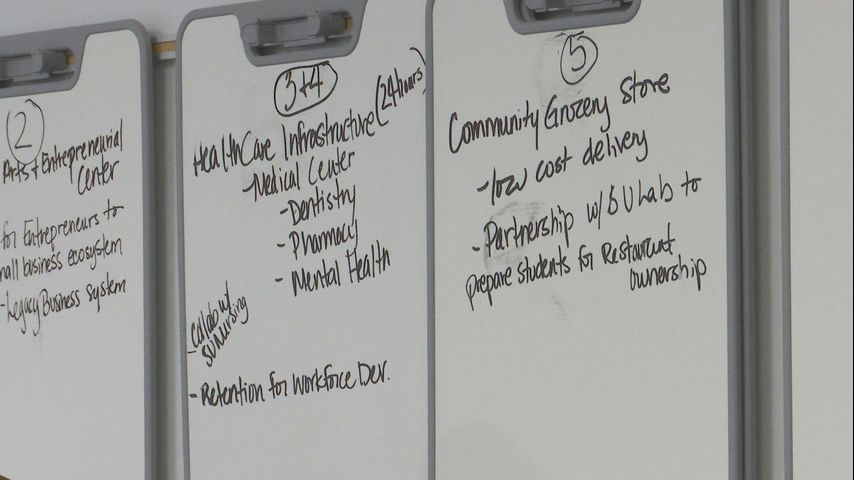 2
Arts + Entrepreneurial
Center
for Entrepreneurs to
mall business ecosystem
- Legacy Business system
3+4
HealthCare Infrastructure (24 hours)
- Medical Center
- Dentistry
- Pharmacy
- Mental Health
- collab w/
SU Nursing
- Retention for Workforce Dev.
5
Community Grocery Store
- low cost delivery
- Partnership w/ SU Lab to
prepare students for Restaurant
ownership